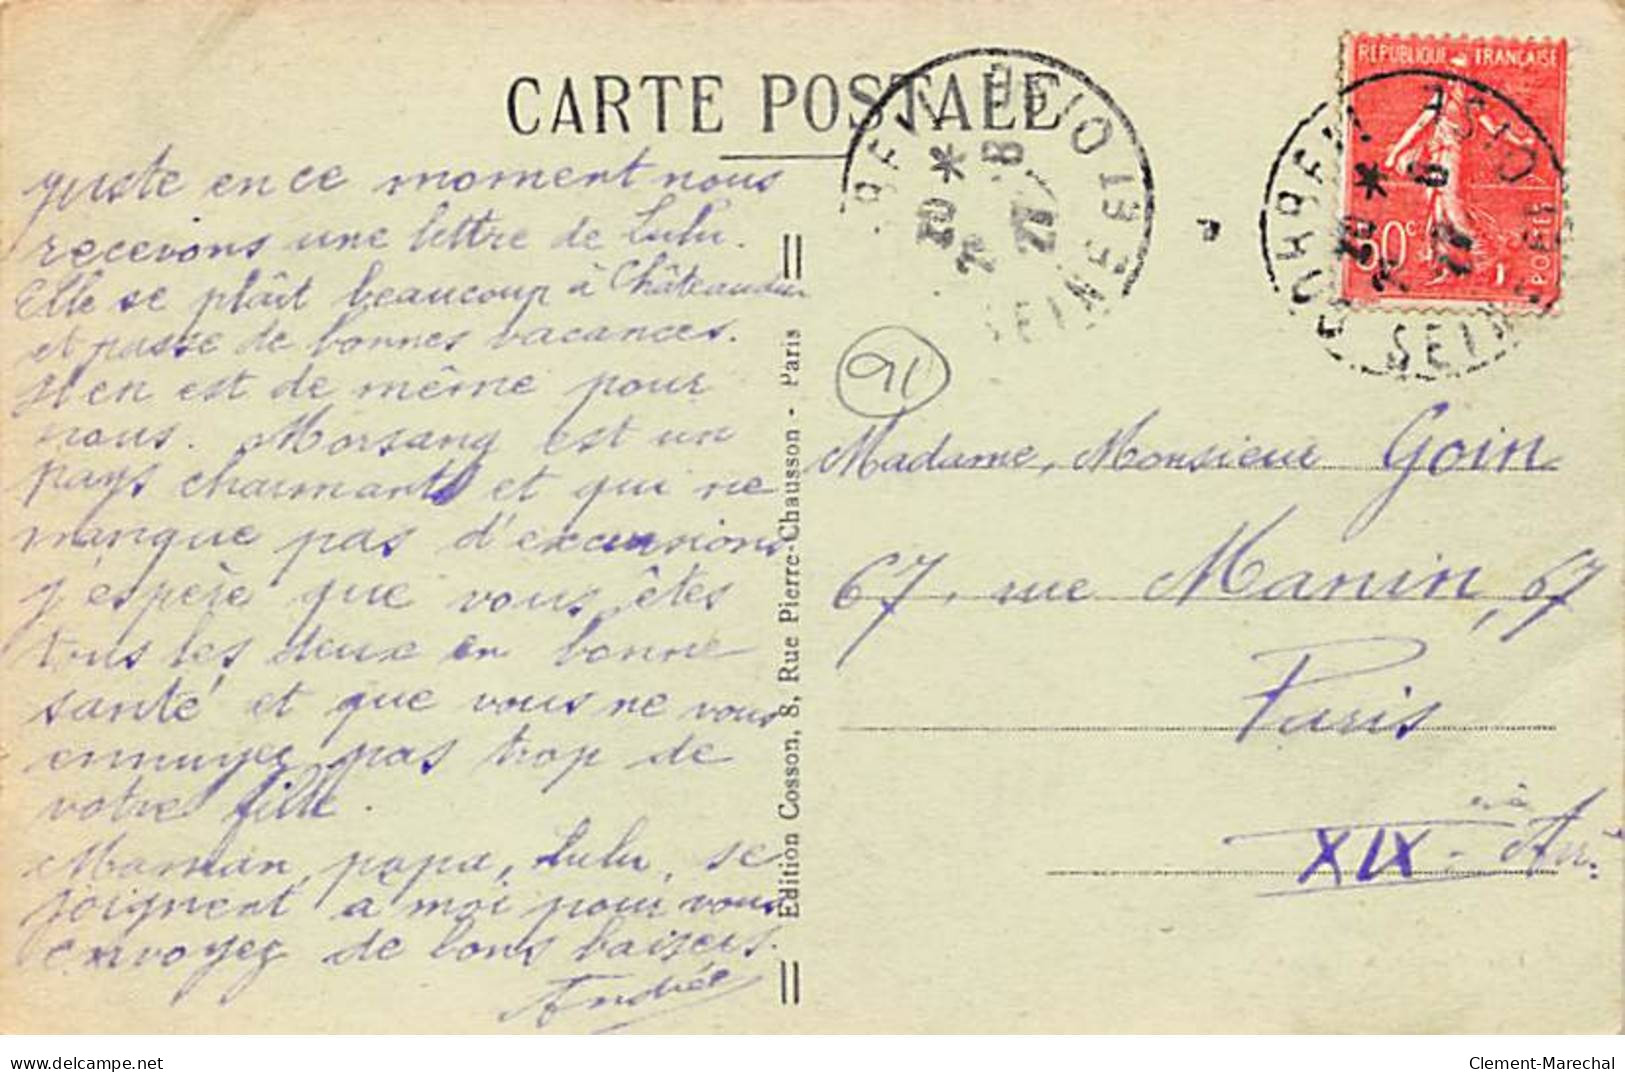 CARTE POSTALE
juste en ce moment nous
recevons une lettre de Lulu.
Elle se plaît beaucoup à Châteaudun
et passe de bonnes vacances.
Il en est de même pour
nous. Morsang est un
pays charmant et qui ne
manque pas d'excursions
j'espère que vous êtes
tous les deux en bonne
santé et que vous ne vous
ennuyez pas trop de
votre fille.
Maman, papa, Lulu, se
joignent à moi pour vous
envoyez de bons baisers.
Andrée
Edition Cosson, 8, Rue Pierre-Chausson - Paris
20 * 8
27
SEINE
REPUBLIQUE FRANÇAISE
50c
POSTES
20 * 8
27
SEINE
91
Madame, Monsieur Goin
67, rue Manin, 67
Paris
XIX Arr.
delcampe.net
Clement-Marechal